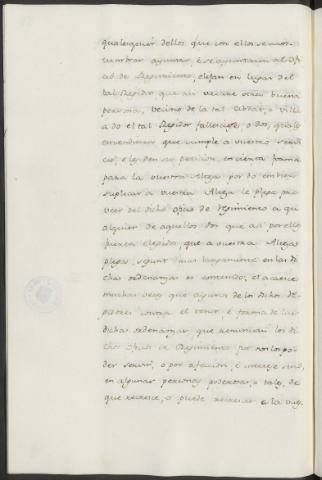 qualesquier dellos que con ellos se acos-
tumbrar ayuntar, è se ayuntaren al Ofi
de Regimiento, elejan en lugar del
tal Regidor que asi vacare otra buena
persona, vecino de la tal Cibdat, o Villa
a do el tal Regidor fallesciese, o dos, quales
entendieren que cumple a vuestro servi
cio, è les den su peticion, en cierta forma
para la vuestra Alteza por do embien
suplicar a vuestra Alteza le plega pro
veer del dicho Oficio de Regimiento a qu
alquier de aquellos dos que asi por ellos
fueren elegidos, que a vuestra Alteza
plega, segunt mas largamente en las di
chas ordenanzas es contenido; et acaesce
muchas veces que algunos de los dichos Re-
gidores contra el tenor è forma de las
dichas ordenanzas, que renuncian los di
chos Oficios de Regimiento por non los po-
der servir, o por aficion, è
en algunas personas poderosas, o tales, de
que recresce, o puede recrescer a la vues